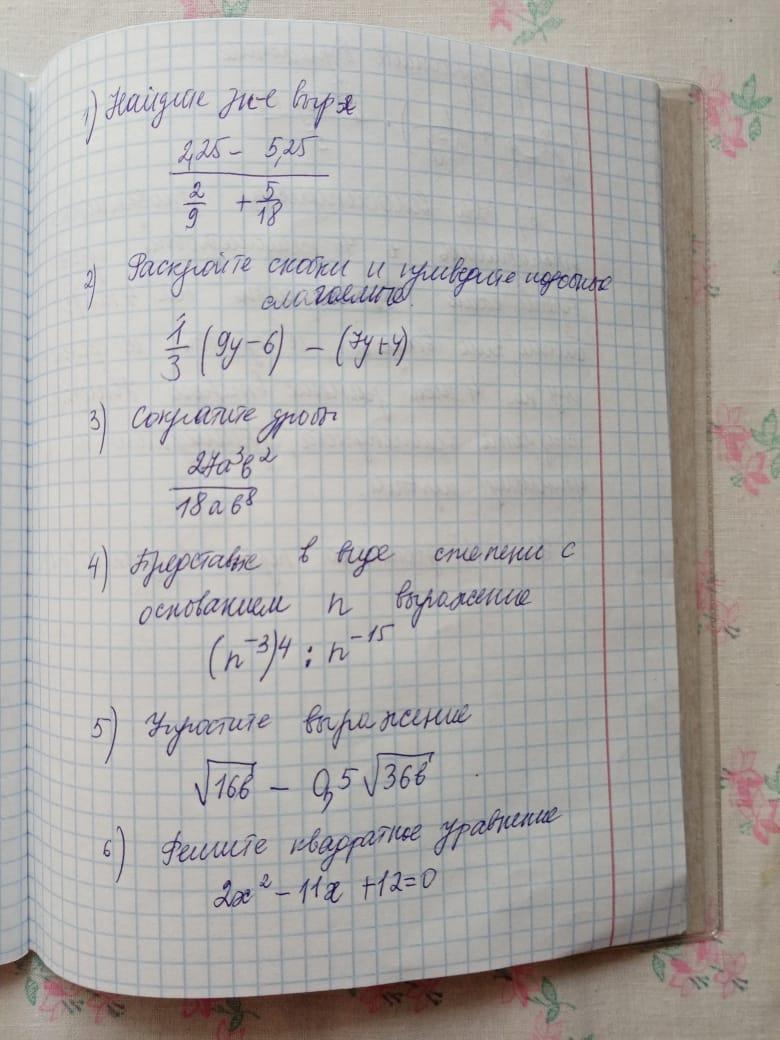 1) Найдите зн-е выр-я
2,25 - 5,25
2/9 + 5/18
2) Раскройте скобки и приведите подобные
слагаемые.
1/3 (9y-6) - (7y+4)
3) Сократите дробь
27a³b²
18ab⁸
4) Представьте в виде степени с
основанием n выражение
(n⁻³)⁴ : n⁻¹⁵
5) Упростите выражение
√16b - 0,5√36b
6) Решите квадратное уравнение
2x² - 11x + 12 = 0